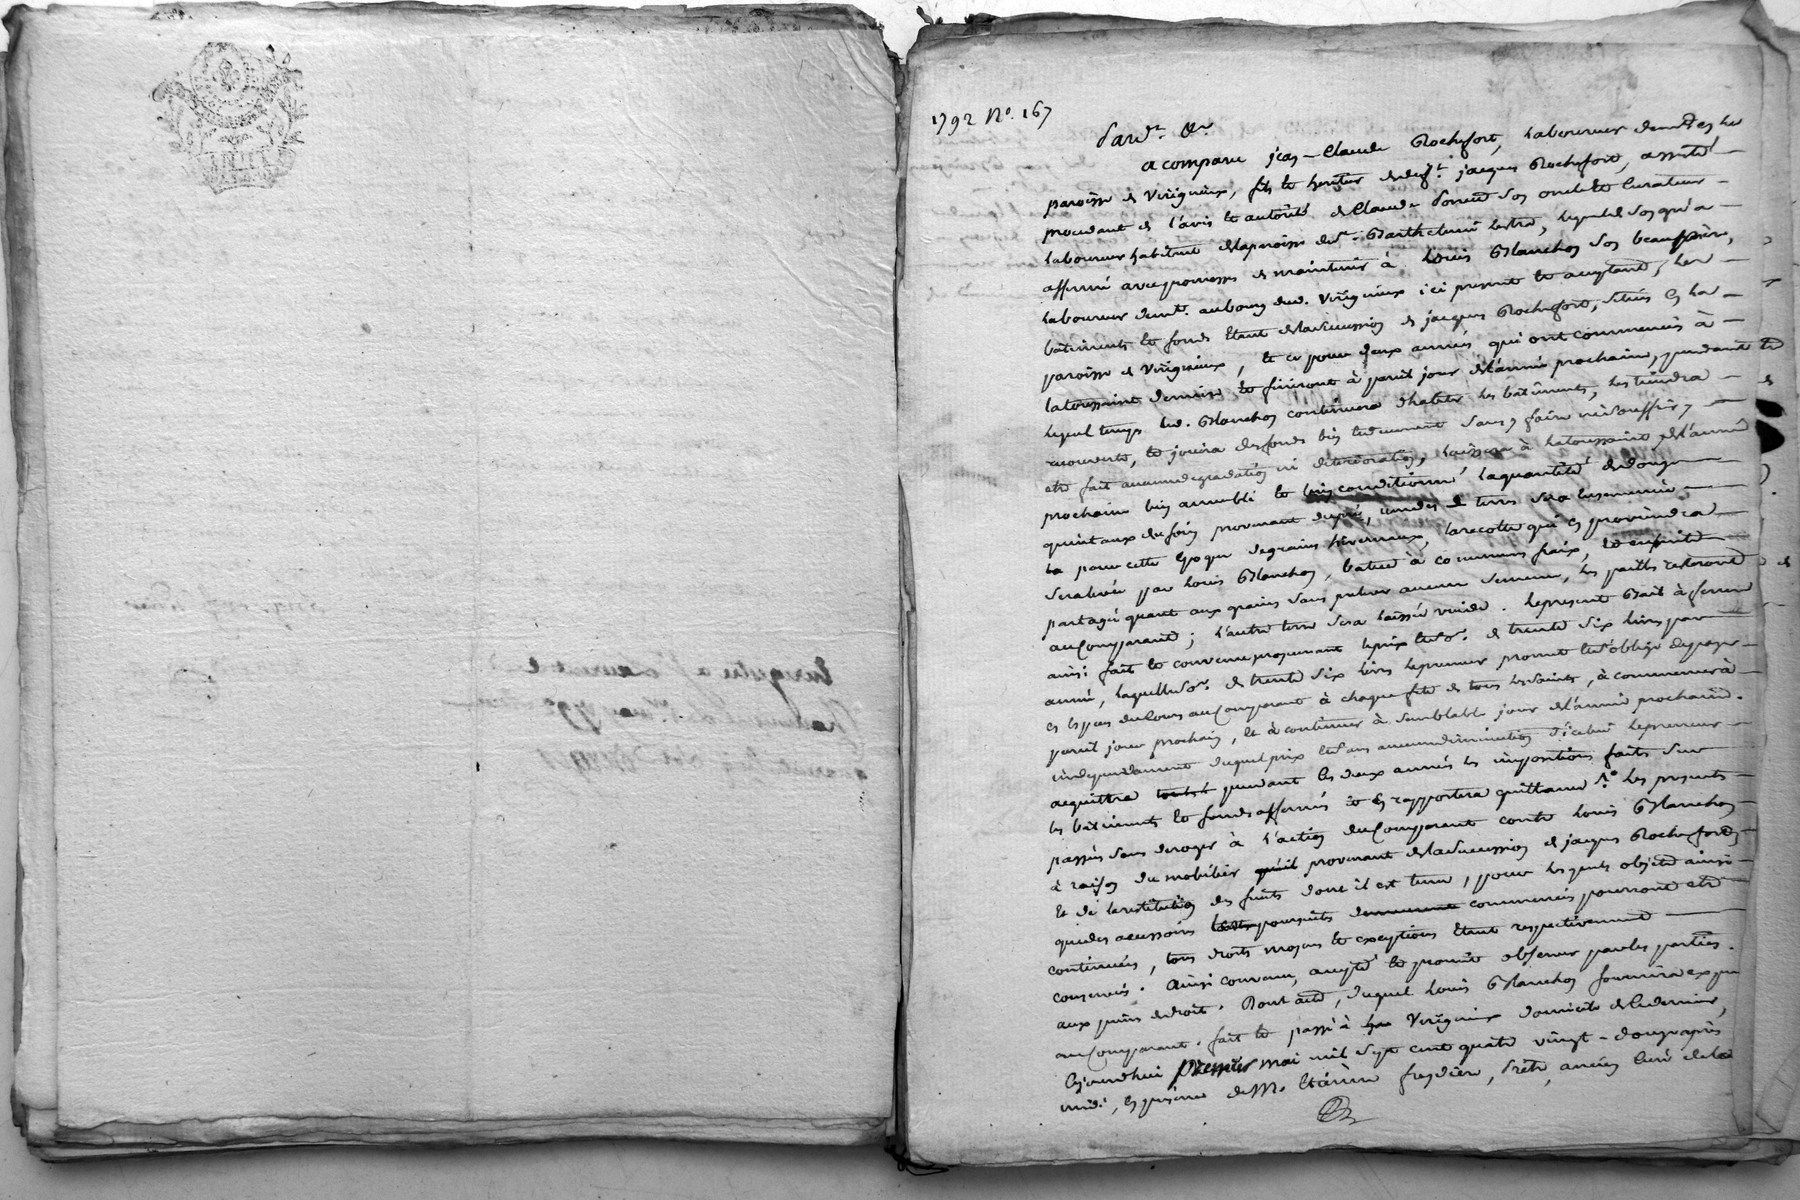 1792 No. 167
Pardt. &c
a comparu jean-Claude Rochefort, laboureur demt. en la
paroisse de Virigneux, fils et heritier de deft. jacques Rochefort, assisté
procedant de l'avis et autorité de Claude son oncle et Curateur
laboureur habitant de la paroisse de St. Barthelemi lestra, lequel de son gré a
affermé avec promesses de maintenir à Louis Blanchon son beaupère,
laboureur demt. au bourg dud. Virigneux ici present et acceptant, les
bâtiments et fonds étant de la succession de jacques Rochefort, situés en la
paroisse de Virigneux, et ce pour deux années qui ont commencés à
la toussaint derniere et finiront à pareil jour de l'année prochaine, pendant
lequel temps led. Blanchon continuera d'habiter les bâtiments, les tiendra
recouverts, et jouira des fonds bien et duement sans y faire ni souffrir y
etre fait aucune degradation ni déterioration, laissera à la toussaint de l'année
prochaine bien ameublé et bien conditionné la quantité de douze
quintaux de foin provenant du pré, une des terres sera ensemencée
la pour cette époque de grains hivernaux, la recolte qui en proviendra
sera levée par Louis Blanchon, battue à communs fraix, et ensuite
partagé quant aux grains sans prelever aucune semence, les pailles resteront
au Comparant; l'autre terre sera laissée vuide. Le present Bail à ferme
ainsi fait et convenu moyenant le prix et so. de trente six livres par
année, laquelle so. de trente six livres le preneur promet et s'oblige de payer
en especes de cours au Comparant à chaque fête de tous les saints, à commencer à
pareil jour prochain, et à continuer à semblable jour de l'année prochaine.
independament duquel prix et sans aucune diminution d'icelui le preneur
acquittera pendant les deux années les impositions faites sur
les bâtiments et fonds affermés et en rapportera quittance so. les presentes
passées sans deroger à l'action du Comparant contre Louis Blanchon
à raison du mobilier provenant de la succession de jacques Rochefort,
et de la restitution des fruits dont il est tenu, pour lesquels objets ainsi
que des accessoires poursuites commencées pourront etre
continuées, tous droits moyens et exceptions étant respectivement
conservés. Ainsi convenu, accepté et promis observer par les parties.
aux peines de droit. Dont acte, duquel Louis Blanchon fournira expon.
au Comparant. fait et passé à Virigneux domicile de ce dernier,
Cejourdhui premier mai mil sept cent quatre vingt-douze après
midi, en presence de Mre. Etienne freydiere, Pretre, ancien Curé de la